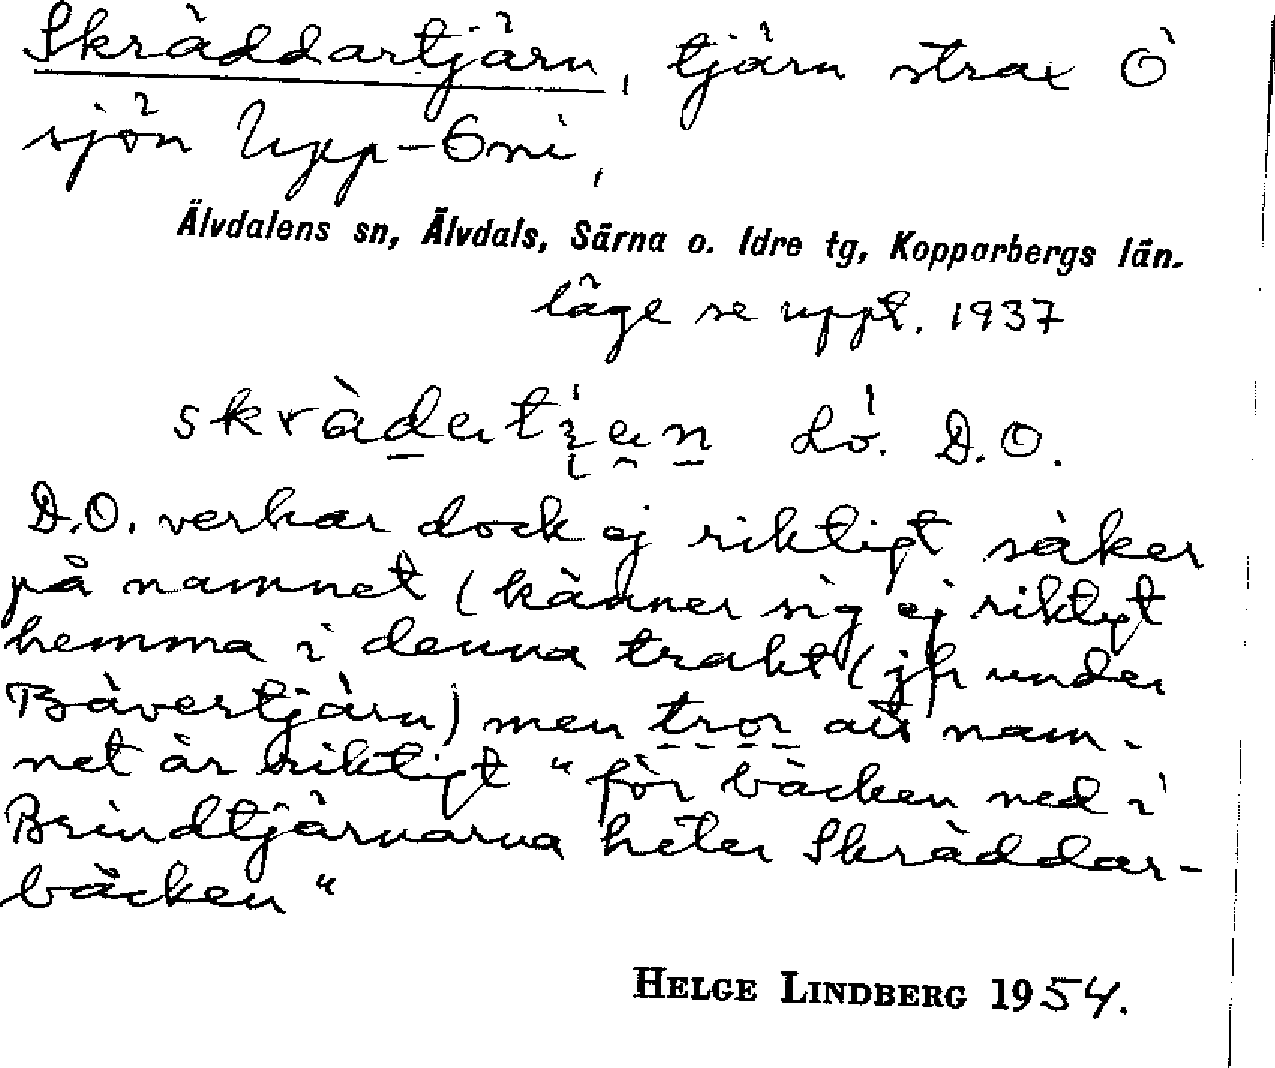 Skräddartjärn, tjärn strax Ö
sjön Upp-Emi,
Älvdalens sn, Älvdals, Särna o. Idre tg, Kopparbergs län.
läge se uppt. 1937
D.O.
D.O. verkar dock ej riktigt säker
på namnet (känner sig ej riktigt
hemma i denna trakt (jfr under
Bävertjärn) men tror att nam-
net är riktigt "för bäcken ned i
Brindtjärnarna heter Skräddar-
bäcken"
HELGE LINDBERG 1954.